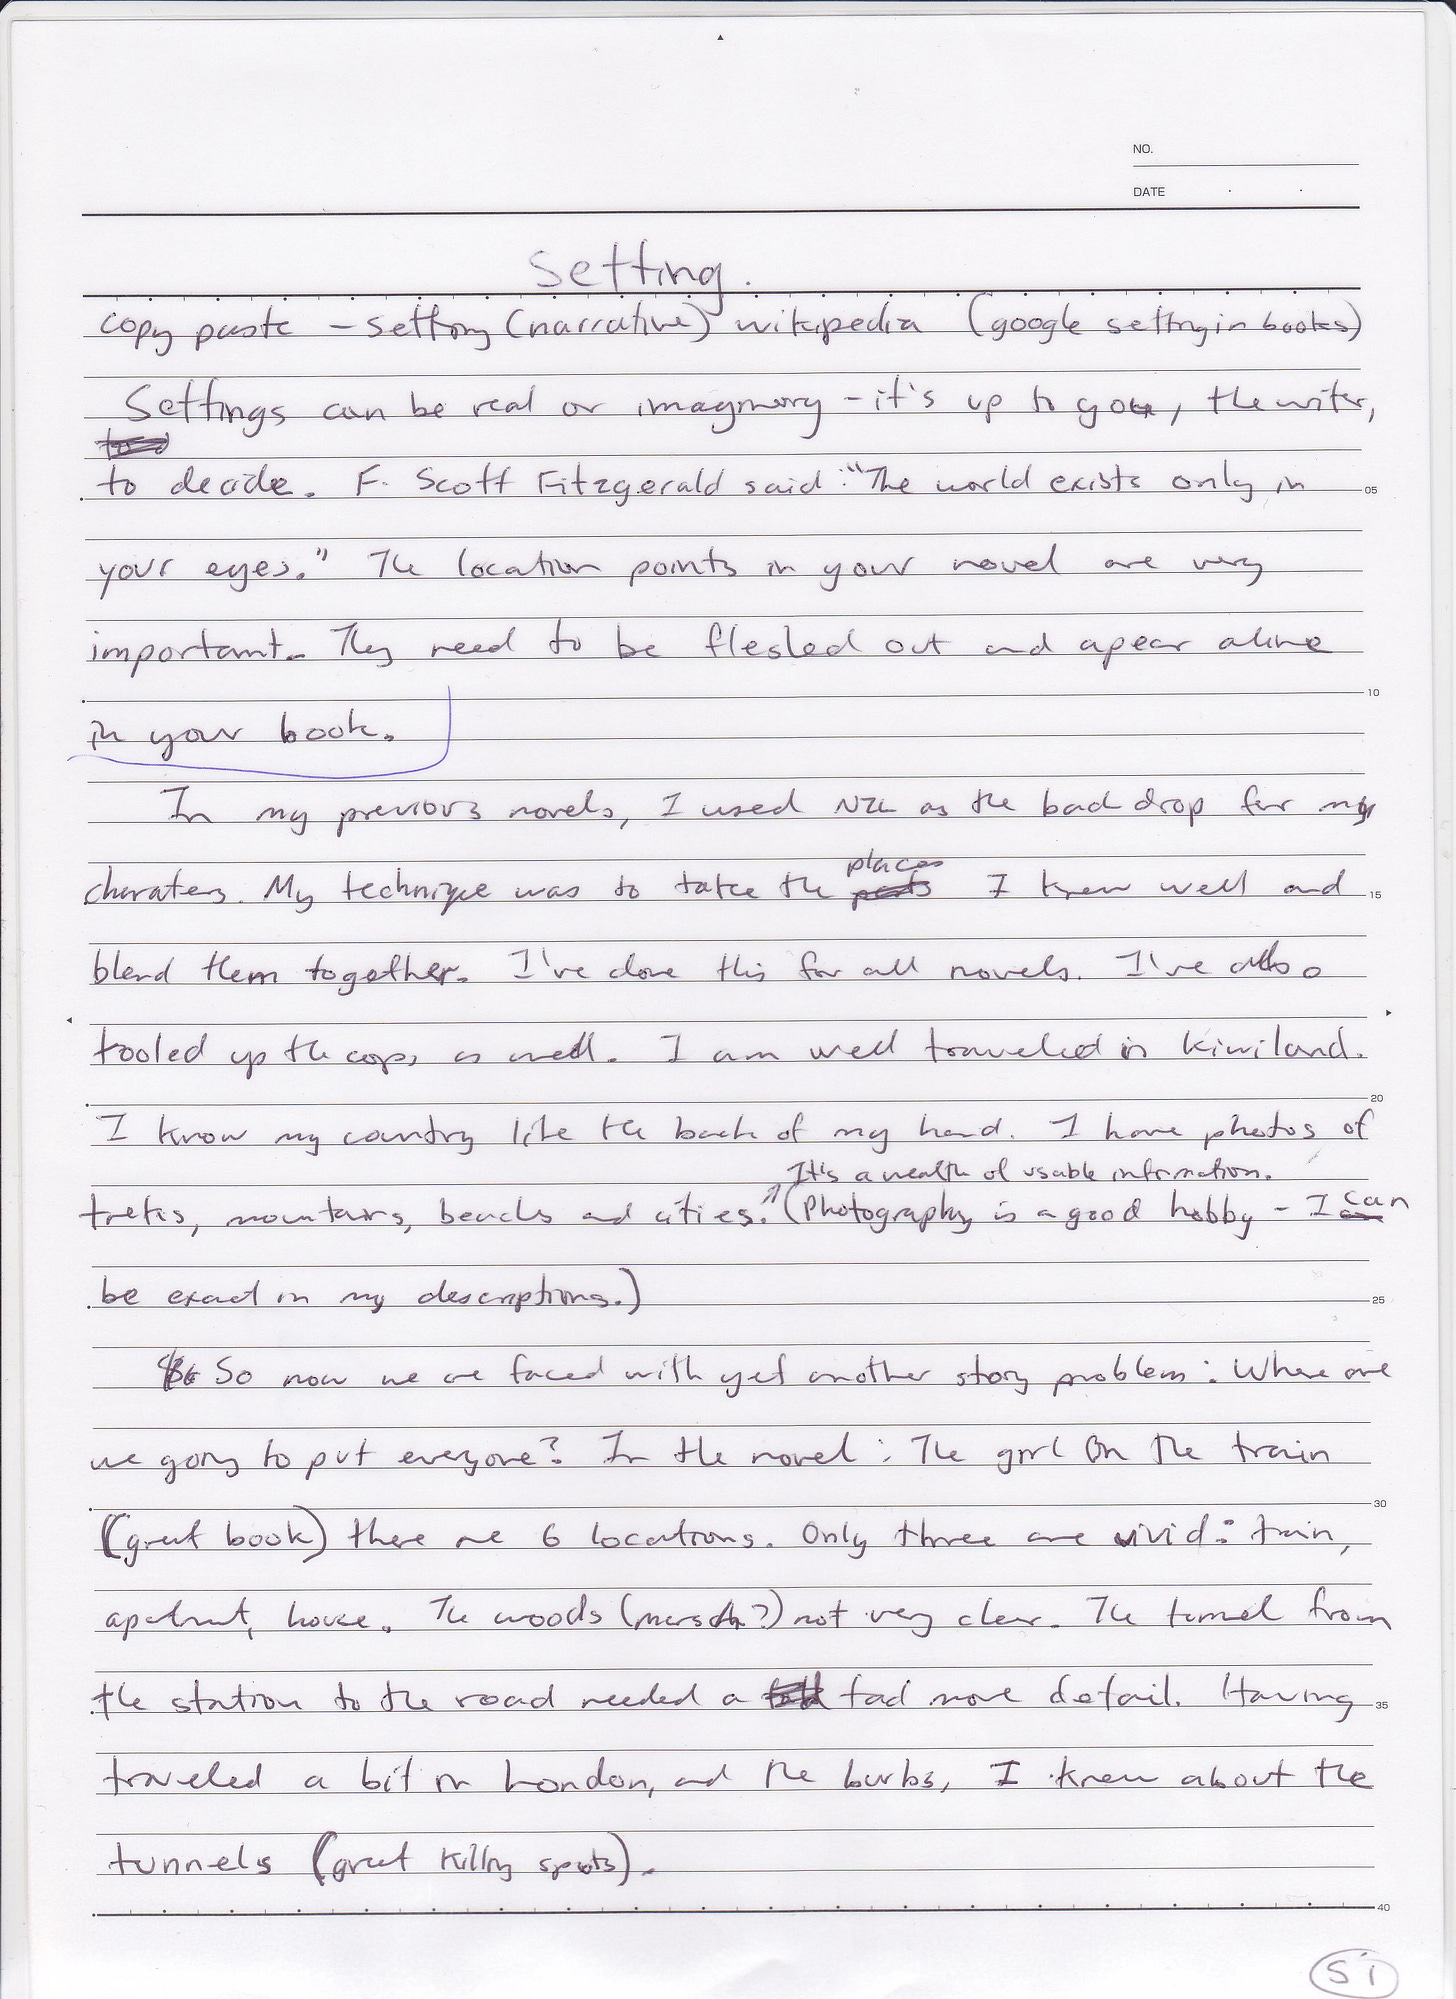 NO.
DATE
Setting.
copy paste - setting (narrative) wikipedia (google setting in books)
Settings can be real or imaginary - it's up to you, the writer,
to decide. F. Scott Fitzgerald said: "The world exists only in
05
your eyes." The location points in your novel are very
important. They need to be fleshed out and apear alive
10
in your book.
In my previous novels, I used NZ as the back drop for my
places
charaters. My technique was to take the parts I knew well and
15
blend them together. I've done this for all novels. I've also
tooled up the cops as well. I am well traveled in Kiwiland.
20
I know my country like the back of my hand. I have photos of
It's a wealth of usable information.
treks, mountains, beachs and cities. (Photography is a good hobby - I can
be exact in my descriptions.)
25
So now we are faced with yet another story problem: Where are
we going to put everyone? In the novel: The girl On The train
30
(great book) there are 6 locations. Only three are vivid: train,
apartment, house. The woods (marsh?) not very clear. The tunnel from
the station to the road needed a tad more detail. Having
35
traveled a bit in London, and the burbs, I knew about the
tunnels (great killing spots).
40
51